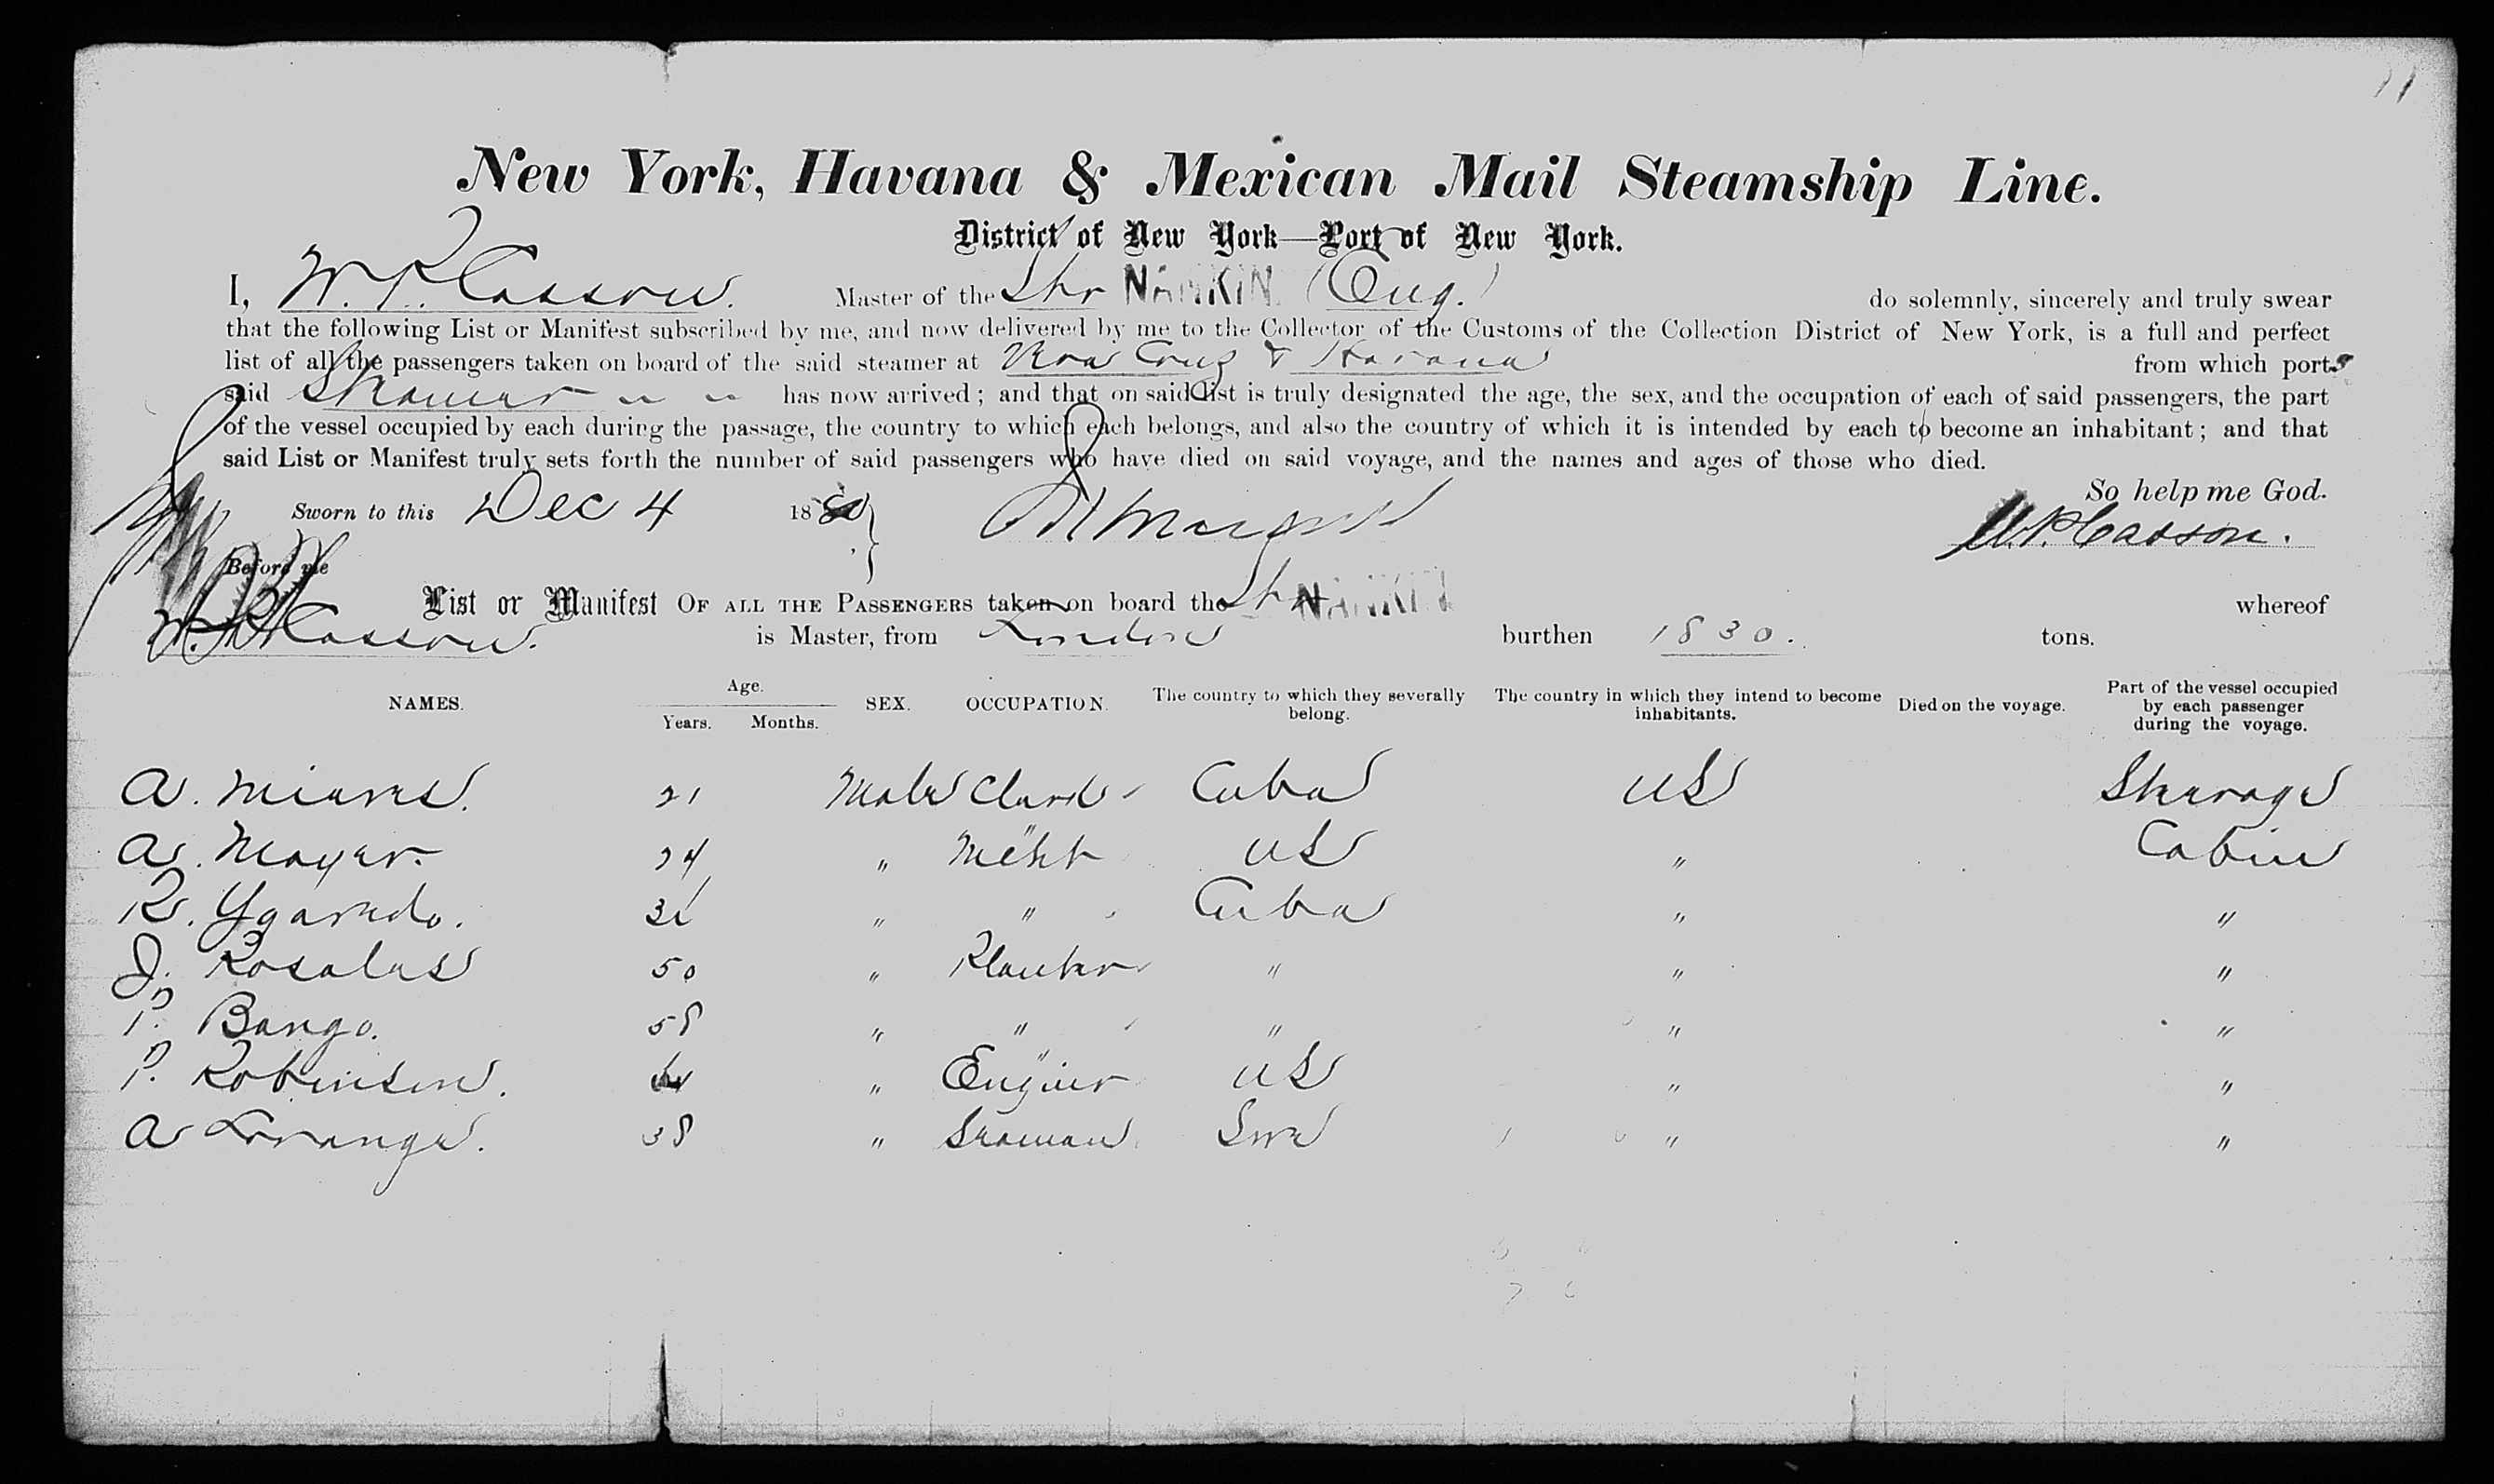 New York, Havana & Mexican Mail Steamship Line.
District of New York—Port of New York.
I, W. P. Casson. Master of the Str NANKIN (Eng.) do solemnly, sincerely and truly swear
that the following List or Manifest subscribed by me, and now delivered by me to the Collector of the Customs of the Collection District of New York, is a full and perfect
list of all the passengers taken on board of the said steamer at Vera Cruz & Havana from which ports
said Steamer " " has now arrived; and that on said list is truly designated the age, the sex, and the occupation of each of said passengers, the part
of the vessel occupied by each during the passage, the country to which each belongs, and also the country of which it is intended by each to become an inhabitant; and that
said List or Manifest truly sets forth the number of said passengers who have died on said voyage, and the names and ages of those who died.
So help me God.
Sworn to this Dec 4 1880
W. P. Casson.
Before me
List or Manifest OF ALL THE PASSENGERS taken on board the Str NANKIN whereof
W. P. Casson. is Master, from London burthen 1830. tons.
NAMES. Age. Years. Months. SEX. OCCUPATION. The country to which they severally belong. The country in which they intend to become inhabitants. Died on the voyage. Part of the vessel occupied by each passenger during the voyage.
A. Miares. 21 Male Clerk Cuba US Steerage
A. Mayer. 24 " Mcht US " Cabin
R. " " Cuba " "
J. Rosales 50 " Planter " " "
P. Bango. 58 " " " " "
P. Robinson. " Engineer US " "
A 38 " Seaman Swe " "